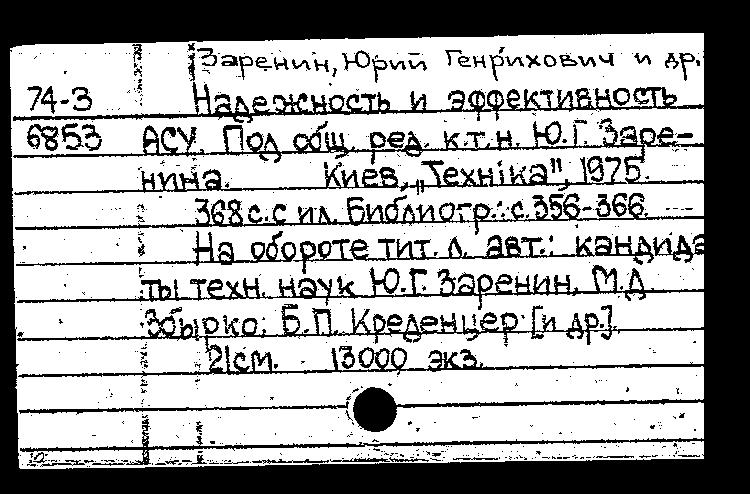 Заренин, Юрий Генрихович и др.
74-3 Надежность и эффективность
6853 АСУ. Под общ. ред. к.т.н. Ю.Г. Заре-
нина. Киев, „Техніка", 1975.
368 с. с ил. Библиогр.: с. 356-366.
На обороте тит. л. авт.: кандида
ты техн. наук Ю.Г. Заренин, М.Д.
Збырко, Б.П. Креденцер [и др.].
21см. 13000 экз.